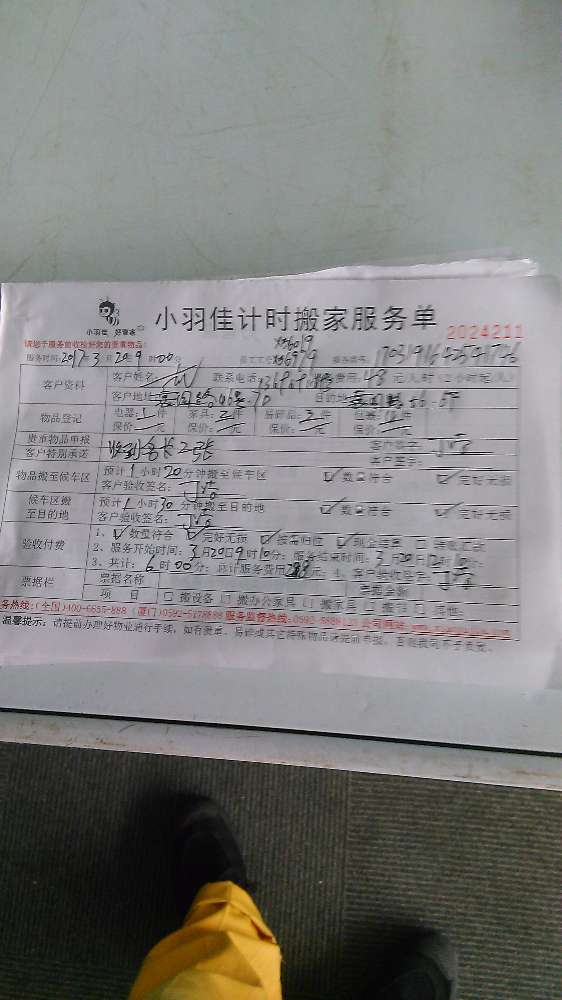 小羽佳 好管家
小羽佳计时搬家服务单
2024211
请您于服务前收捡好您的贵重物品:
服务时间:2017.3月20日9时00分 员工工号
客户资料
客户姓名: 联系电话: 费用:48元/人/时(2小时起/人)
客户地址: 目的地:
物品登记
电器:1件 家具: 件 易碎品: 件 包裹: 件
保价: 元 保价: 元 保价: 元 保价: 元
贵重物品申报
客户签字:
客户特别承诺
客户签字:
物品搬至候车区
预计1小时20分钟搬至候车区 ☑数量符合 ☑完好无损
客户验收签名:
候车区搬至目的地
预计1小时30分钟搬至目的地 ☑数量符合 ☑完好无损
客户验收签名:
验收付费
1、☑数量符合 ☑完好无损 ☑按需归位 ☑现金结算
2、服务开始时间:3月20日9时10分;服务结束时间:3月20日12时10分;
3、共计:6时00分;总计服务费用288元;4、客户验收签名:
票据栏
票据名称 票据金额
项 目 □搬设备 □搬办公家具 □搬家具 □搬 □其他:
务热线:(全国)400-6655-888 (厦门)0592-5178888 服务监督热线:0592-5888123 公司网站:
温馨提示:请提前办理好物业进行手续,如有贵重、易碎或其它特殊物品请提前申报,否则我司不予负责。